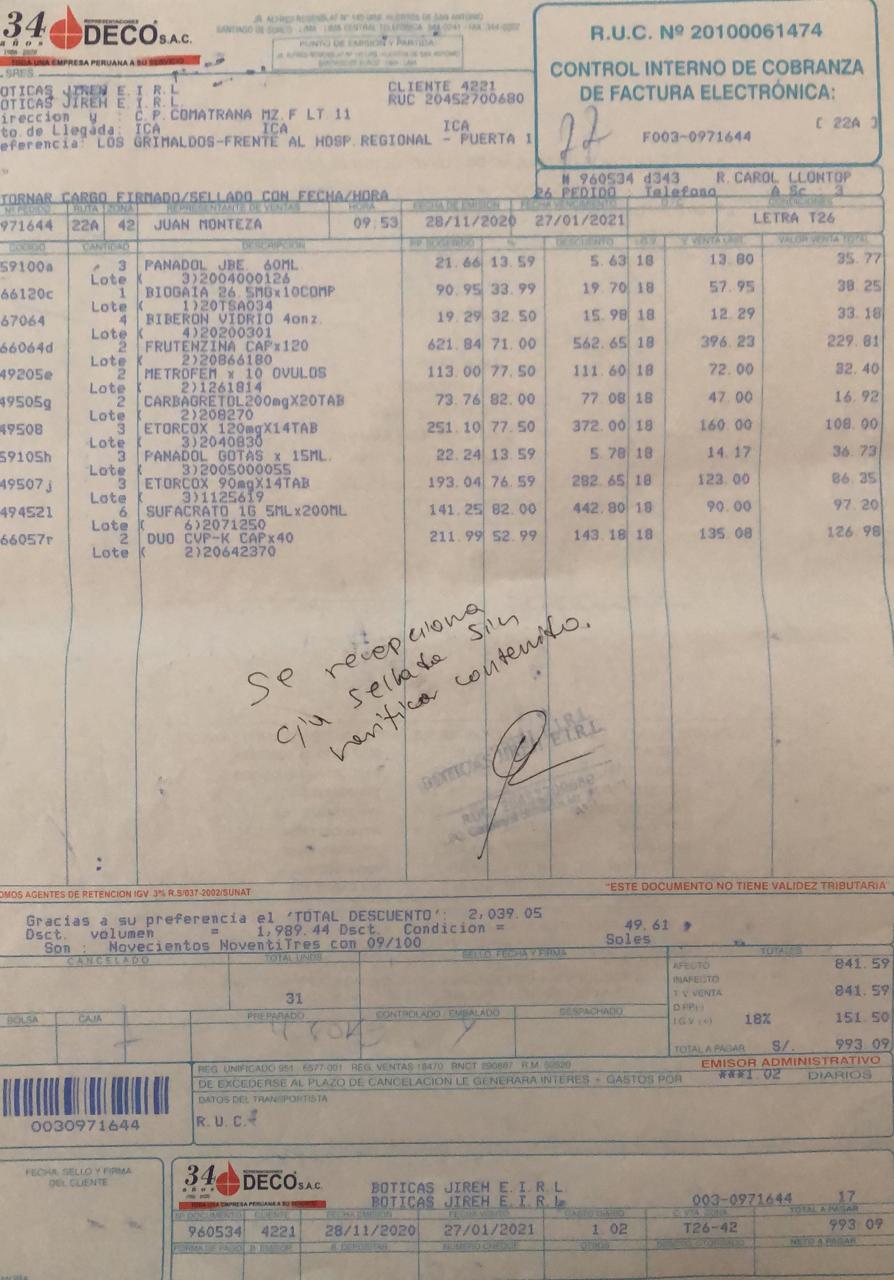 34 años REPRESENTACIONES DECO S.A.C.
TODA UNA EMPRESA PERUANA A SU SERVICIO
PUNTO DE EMISIÓN Y PARTIDA
R.U.C. Nº 20100061474
CONTROL INTERNO DE COBRANZA
DE FACTURA ELECTRÓNICA:
22
F003-0971644 ( 22A )
SRES
OTICAS JIREH E.I.R.L CLIENTE 4221
OTICAS JIREH E.I.R.L. RUC 20452700680
ireccion y : C.P.COMATRANA MZ.F LT 11
to.de Llegada: ICA ICA ICA
eferencia: LOS GRIMALDOS-FRENTE AL HOSP.REGIONAL - PUERTA 1
# 960534 d343 R.CAROL LLONTOP
TORNAR CARGO FIRMADO/SELLADO CON FECHA/HORA 26 PEDIDO : Telefono A Sc : 3
Nº PEDIDO RUTA ZONA REPRESENTANTE DE VENTAS HORA FECHA DE EMISION FECHA VENCIMIENTO O/C CONDICIONES
971644 22A 42 JUAN MONTEZA 09:53 28/11/2020 27/01/2021 LETRA T26
CODIGO CANTIDAD DESCRIPCION P.P. SUGERIDO % DESCUENTO I.G.V. V. VENTA UNIT. VALOR VENTA TOTAL
59100a 3 PANADOL JBE. 60ML 21.66 13.59 5.63 18 13.80 35.77
Lote ( 3)2004000126
66120c 1 BIOGAIA 26.5MGx10COMP 90.95 33.99 19.70 18 57.95 38.25
Lote ( 1)20TSA034
67064 4 BIBERON VIDRIO 4onz. 19.29 32.50 15.98 18 12.29 33.18
Lote ( 4)20200301
66064d 2 FRUTENZINA CAPx120 621.84 71.00 562.65 18 396.23 229.81
Lote ( 2)20866180
49205e 2 METROFEM x 10 OVULOS 113.00 77.50 111.60 18 72.00 32.40
Lote ( 2)1261814
49505g 2 CARBAGRETOL200mgX20TAB 73.76 82.00 77.08 18 47.00 16.92
Lote ( 2)208270
49508 3 ETORCOX 120mgX14TAB 251.10 77.50 372.00 18 160.00 108.00
Lote ( 3)2040830
59105h 3 PANADOL GOTAS x 15ML. 22.24 13.59 5.78 18 14.17 36.73
Lote ( 3)2005000055
49507j 3 ETORCOX 90mgX14TAB 193.04 76.59 282.65 18 123.00 86.35
Lote ( 3)1125619
494521 6 SUFACRATO 1G 5MLx200ML 141.25 82.00 442.80 18 90.00 97.20
Lote ( 6)2071250
66057r 2 DUO CVP-K CAPx40 211.99 52.99 143.18 18 135.08 126.98
Lote ( 2)20642370
Se recepciona
c/a sellada sin
verificar contenido.
BOTICAS JIREH E.I.R.L.
OMOS AGENTES DE RETENCION IGV. 3% R.S/037-2002/SUNAT
"ESTE DOCUMENTO NO TIENE VALIDEZ TRIBUTARIA"
Gracias a su preferencia el 'TOTAL DESCUENTO': 2,039.05
Dsct. volumen = 1,989.44 Dsct. Condicion = 49.61
Son : Novecientos NoventiTres con 09/100 Soles
CANCELADO TOTAL UNDS SELLO, FECHA Y FIRMA TOTALES
31
AFECTO 841.59
INAFECTO
T.V. VENTA 841.59
D.PP.(-)
I.G.V.(+) 18% 151.50
TOTAL A PAGAR S/. 993.09
BOLSA CAJA PREPARADO CONTROLADO / EMBALADO DESPACHADO
EMISOR ADMINISTRATIVO
DE EXCEDERSE AL PLAZO DE CANCELACION LE GENERARA INTERES + GASTOS POR ***1.02 DIARIOS
DATOS DEL TRANSPORTISTA
R.U.C.:
0030971644
FECHA, SELLO Y FIRMA
DEL CLIENTE
34 años REPRESENTACIONES DECO S.A.C.
TODA UNA EMPRESA PERUANA A SU SERVICIO
BOTICAS JIREH E.I.R.L.
BOTICAS JIREH E.I.R.L. 003-0971644 17
Nº DOCUMENTO CLIENTE FECHA EMISION FECHA VENCTO GASTO DIARIO C. VTA. ZONA TOTAL A PAGAR
960534 4221 28/11/2020 27/01/2021 1.02 T26-42 993.09
FORMA DE PAGO B. EMISOR B. DEPOSITAR NUMERO CHEQUE OTROS NETO A PAGAR